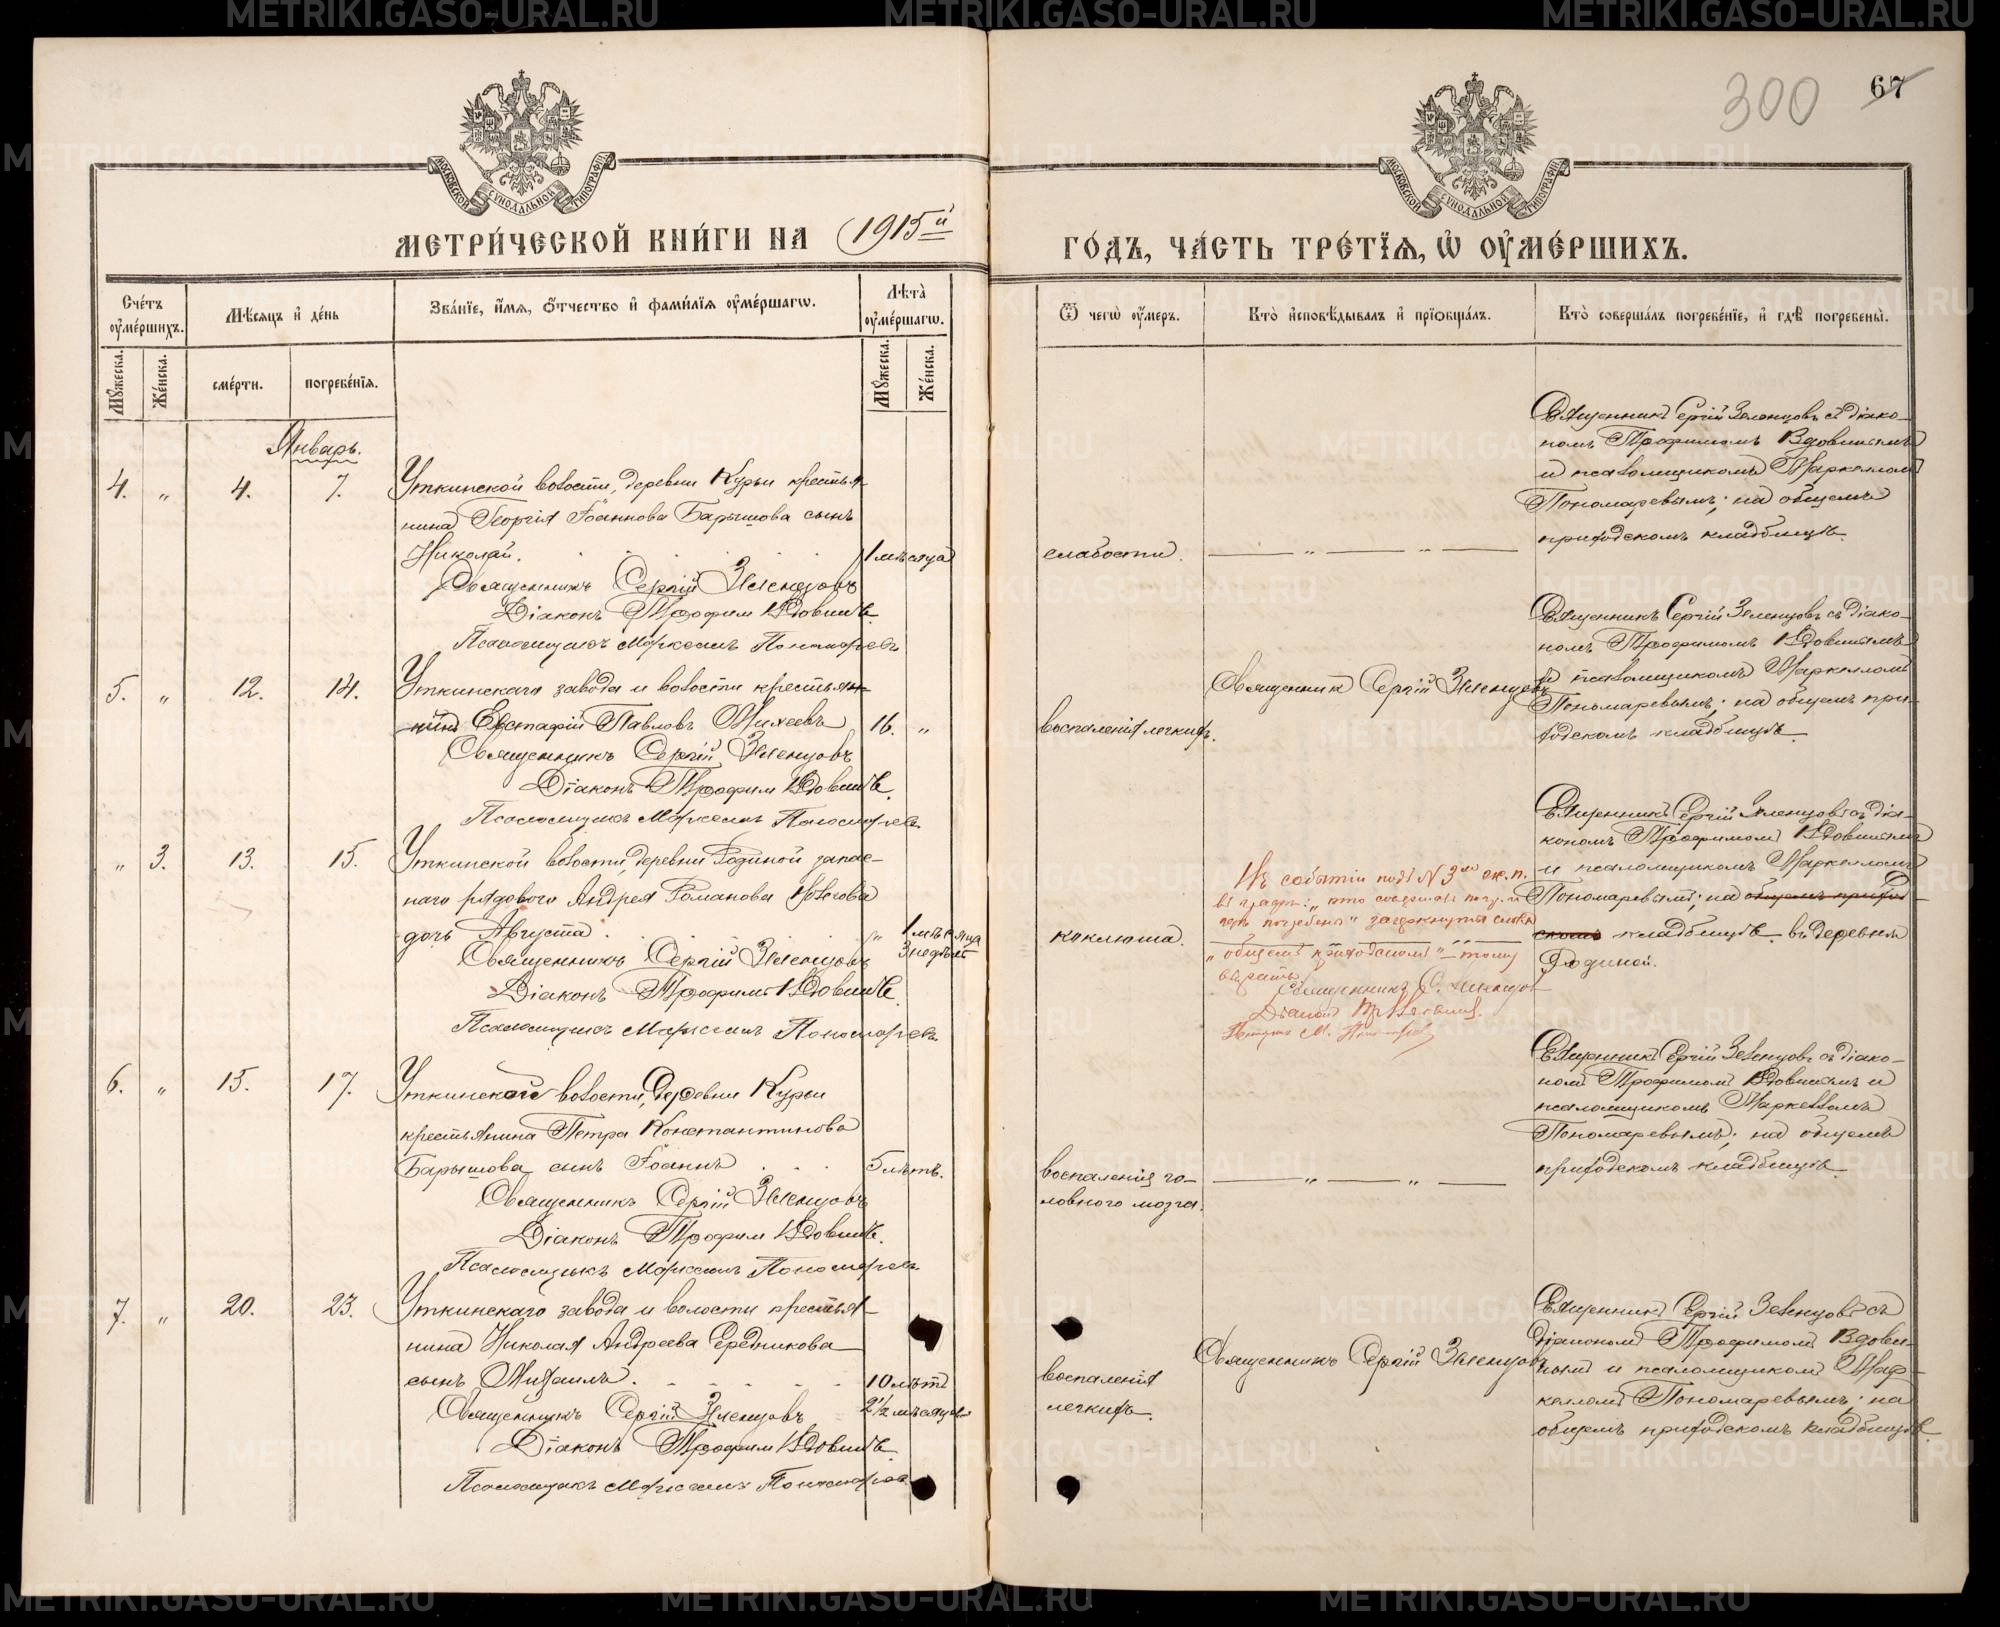 300
67
МОСКОВСКОЙ СѴНОДАЛЬНОЙ ТИПОГРАФІИ
МОСКОВСКОЙ СѴНОДАЛЬНОЙ ТИПОГРАФІИ
МЕТРИ́ЧЕСКОЙ КНИ́ГИ НА 1915й
ГО́ДЪ, ЧА́СТЬ ТРЕ́ТЇѦ, Ѡ҆ ОУ҆МЕ́РШИХЪ.
Сче́тъ оу҆ме́ршихъ.
Мѣ́сяцъ и҆ де́нь
Зва́нїе, и҆́мя, ѻ҆́тчество и҆ фами́лїя оу҆ме́ршагѡ.
Лѣ́та оу҆ме́ршагѡ.
Ѿ чегѡ̀ оу҆́меръ.
Кто̀ и҆сповѣ́дывалъ и҆ прїѻбща́лъ.
Кто̀ соверша́лъ погребе́нїе, и҆ гдѣ̀ погребены̀.
Мꙋ́жеска.
Же́нска.
сме́рти.
погребе́нїя.
Мꙋ́жеска.
Же́нска.
Январь.
4. „ 4. 7.
Уткинской волости, деревни Курьи крестья-
нина Георгія Іоаннова Барышова сынъ
Николай. 1 мѣсяца
Священникъ Сергій Зеленцовъ
Діаконъ Трофим Вдовинъ.
Псаломщикъ Маркеллъ Пономаревъ
слабости. — „ — „ —
Священникъ Сергій Зеленцовъ съ діако-
номъ Трофимомъ Вдовинымъ
и псаломщикомъ Маркелломъ
Пономаревымъ; на общемъ
приходскомъ кладбищѣ.
5. „ 12. 14.
Уткинскаго завода и волости крестьян-
нинъ Евстафій Павловъ Михеевъ 16. „
Священникъ Сергій Зеленцовъ
Діаконъ Трофим Вдовинъ.
Псаломщикъ Маркеллъ Пономаревъ
воспаленія легкихъ.
Священникъ Сергій Зеленцовъ
Священникъ Сергій Зеленцовъ съ діако-
номъ Трофимомъ Вдовинымъ
и псаломщикомъ Маркелломъ
Пономаревымъ; на общемъ при-
ходскомъ кладбищѣ.
„ 3. 13. 15.
Уткинской волости, деревни Родиной запас-
наго рядового Андрея Романова
дочь Августа. „ 1 мѣсяца
3 недѣль
Священникъ Сергій Зеленцовъ
Діаконъ Трофимъ Вдовинъ.
Псаломщикъ Маркеллъ Пономаревъ
коклюша.
Въ событіи подъ N 3мъ ж. п.
въ графѣ: „кто совершалъ погр. и
гдѣ погребенъ" зачеркнутыя слова
„общемъ приходскомъ" —
Священникъ С. Зеленцовъ
Діаконъ Тр. Вдовинъ.
М. Пономаревъ
Священникъ Сергій Зеленцовъ съ діа-
кономъ Трофимомъ Вдовинымъ
и псаломщикомъ Маркелломъ
Пономаревымъ; на общемъ приход-
скомъ кладбищѣ. въ деревни
Родиной.
6. „ 15. 17.
Уткинской волости, деревни Курьи
крестьянина Петра Константинова
Барышова сынъ Іоаннъ 5 лѣтъ.
Священникъ Сергій Зеленцовъ
Діаконъ Трофим Вдовинъ.
Псаломщикъ Маркеллъ Пономаревъ
воспаленія го-
ловного мозга.
— „ — „ —
Священникъ Сергій Зеленцовъ съ діако-
номъ Трофимомъ Вдовинымъ и
псаломщикомъ Маркелломъ
Пономаревымъ; на общемъ
приходскомъ кладбищѣ.
7. „ 20. 23.
Уткинскаго завода и волости крестья-
нина Николая Андреева Середникова
сынъ Михаилъ. 10 лѣтъ
2½ мѣсяцев
Священникъ Сергій Зеленцовъ
Діаконъ Трофим Вдовинъ.
Псаломщикъ Маркеллъ Пономаревъ
воспаленія
легкихъ.
Священникъ Сергій Зеленцовъ
Священникъ Сергій Зеленцовъ съ
діакономъ Трофимомъ Вдови-
нымъ и псаломщикомъ Мар-
келломъ Пономаревымъ; на
общемъ приходскомъ кладбищѣ.
METRIKI.GASO-URAL.RU